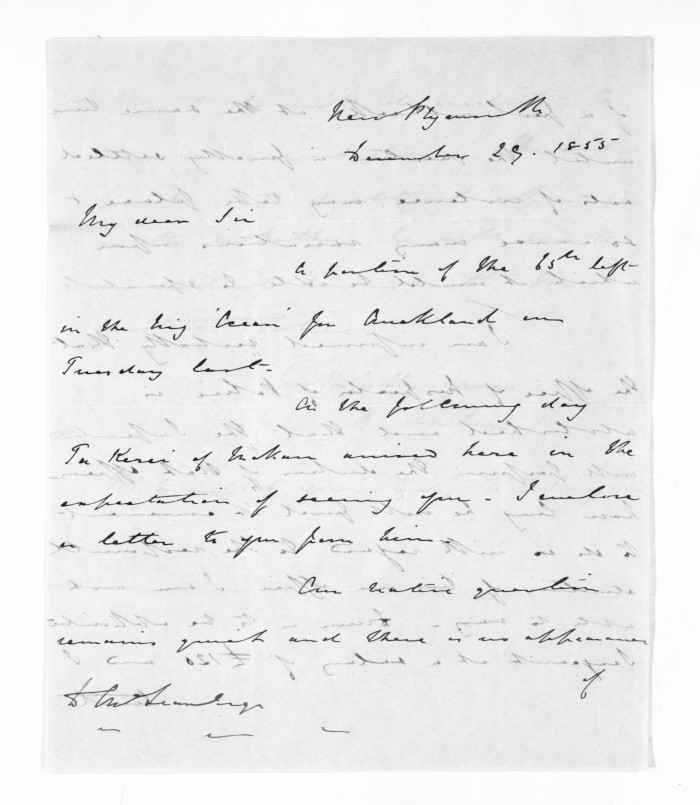 New Plymouth
December 29. 1855
My dear Sir
A portion of the 65th left
in the brig 'Ocean' for Auckland on
Tuesday last.
On the following day
Te Kerei of Mokau arrived here in the
expectation of seeing you - I enclose
a letter to you from him
Our native question
remains quiet and there is no appearance
of
D McLean Esqr